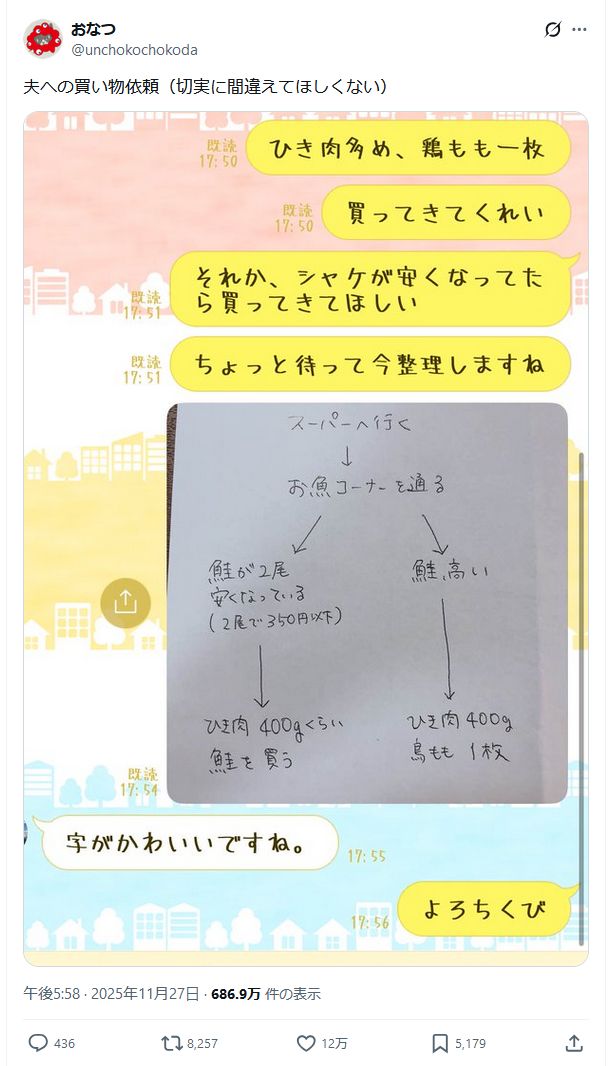 おなつ
@unchokochokoda
夫への買い物依頼（切実に間違えてほしくない）
ひき肉多め、鶏もも一枚
既読
17:50
買ってきてくれい
既読
17:50
それか、シャケが安くなってた
ら買ってきてほしい
既読
17:51
ちょっと待って今整理しますね
既読
17:51
スーパーへ行く
↓
お魚コーナーを通る
鮭が2尾
安くなっている
(2尾で350円以下)
鮭、高い
ひき肉 400gくらい
鮭を買う
ひき肉 400g
鳥もも 1枚
既読
17:54
字がかわいいですね。
17:55
よろちくび
17:56
午後5:58 · 2025年11月27日 · 686.9万 件の表示
436
8,257
12万
5,179